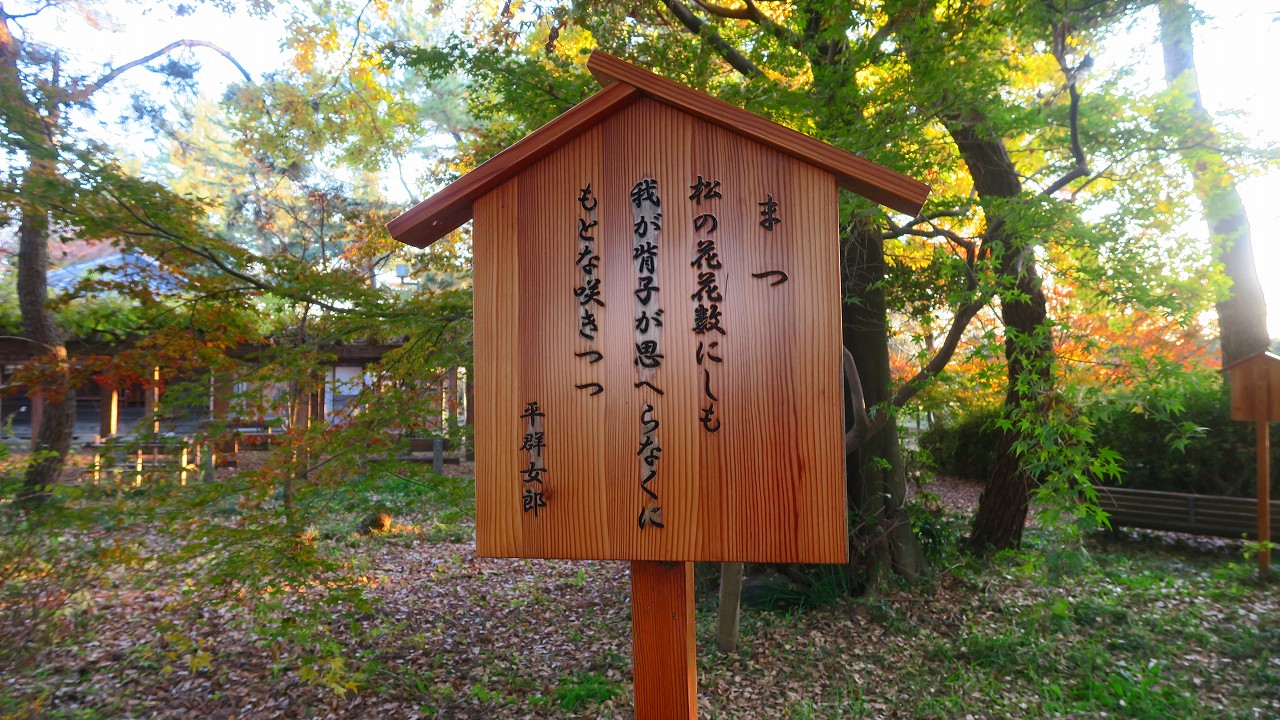 まつ
松の花花数にしも
我が背子が思へらなくに
もとな咲きつつ
平群女郎